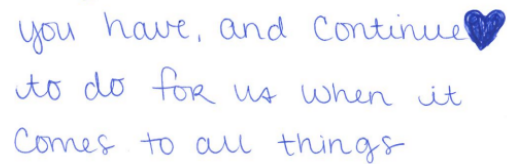 you have, and continue
to do for us when it
comes to all things